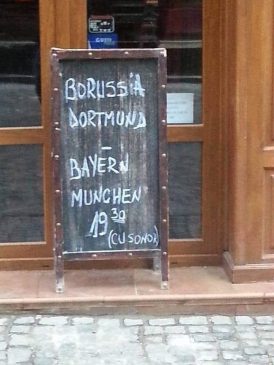 BORUSSIA
DORTMUND
-
BAYERN
MUNCHEN
19³⁰
(CU SONOR)